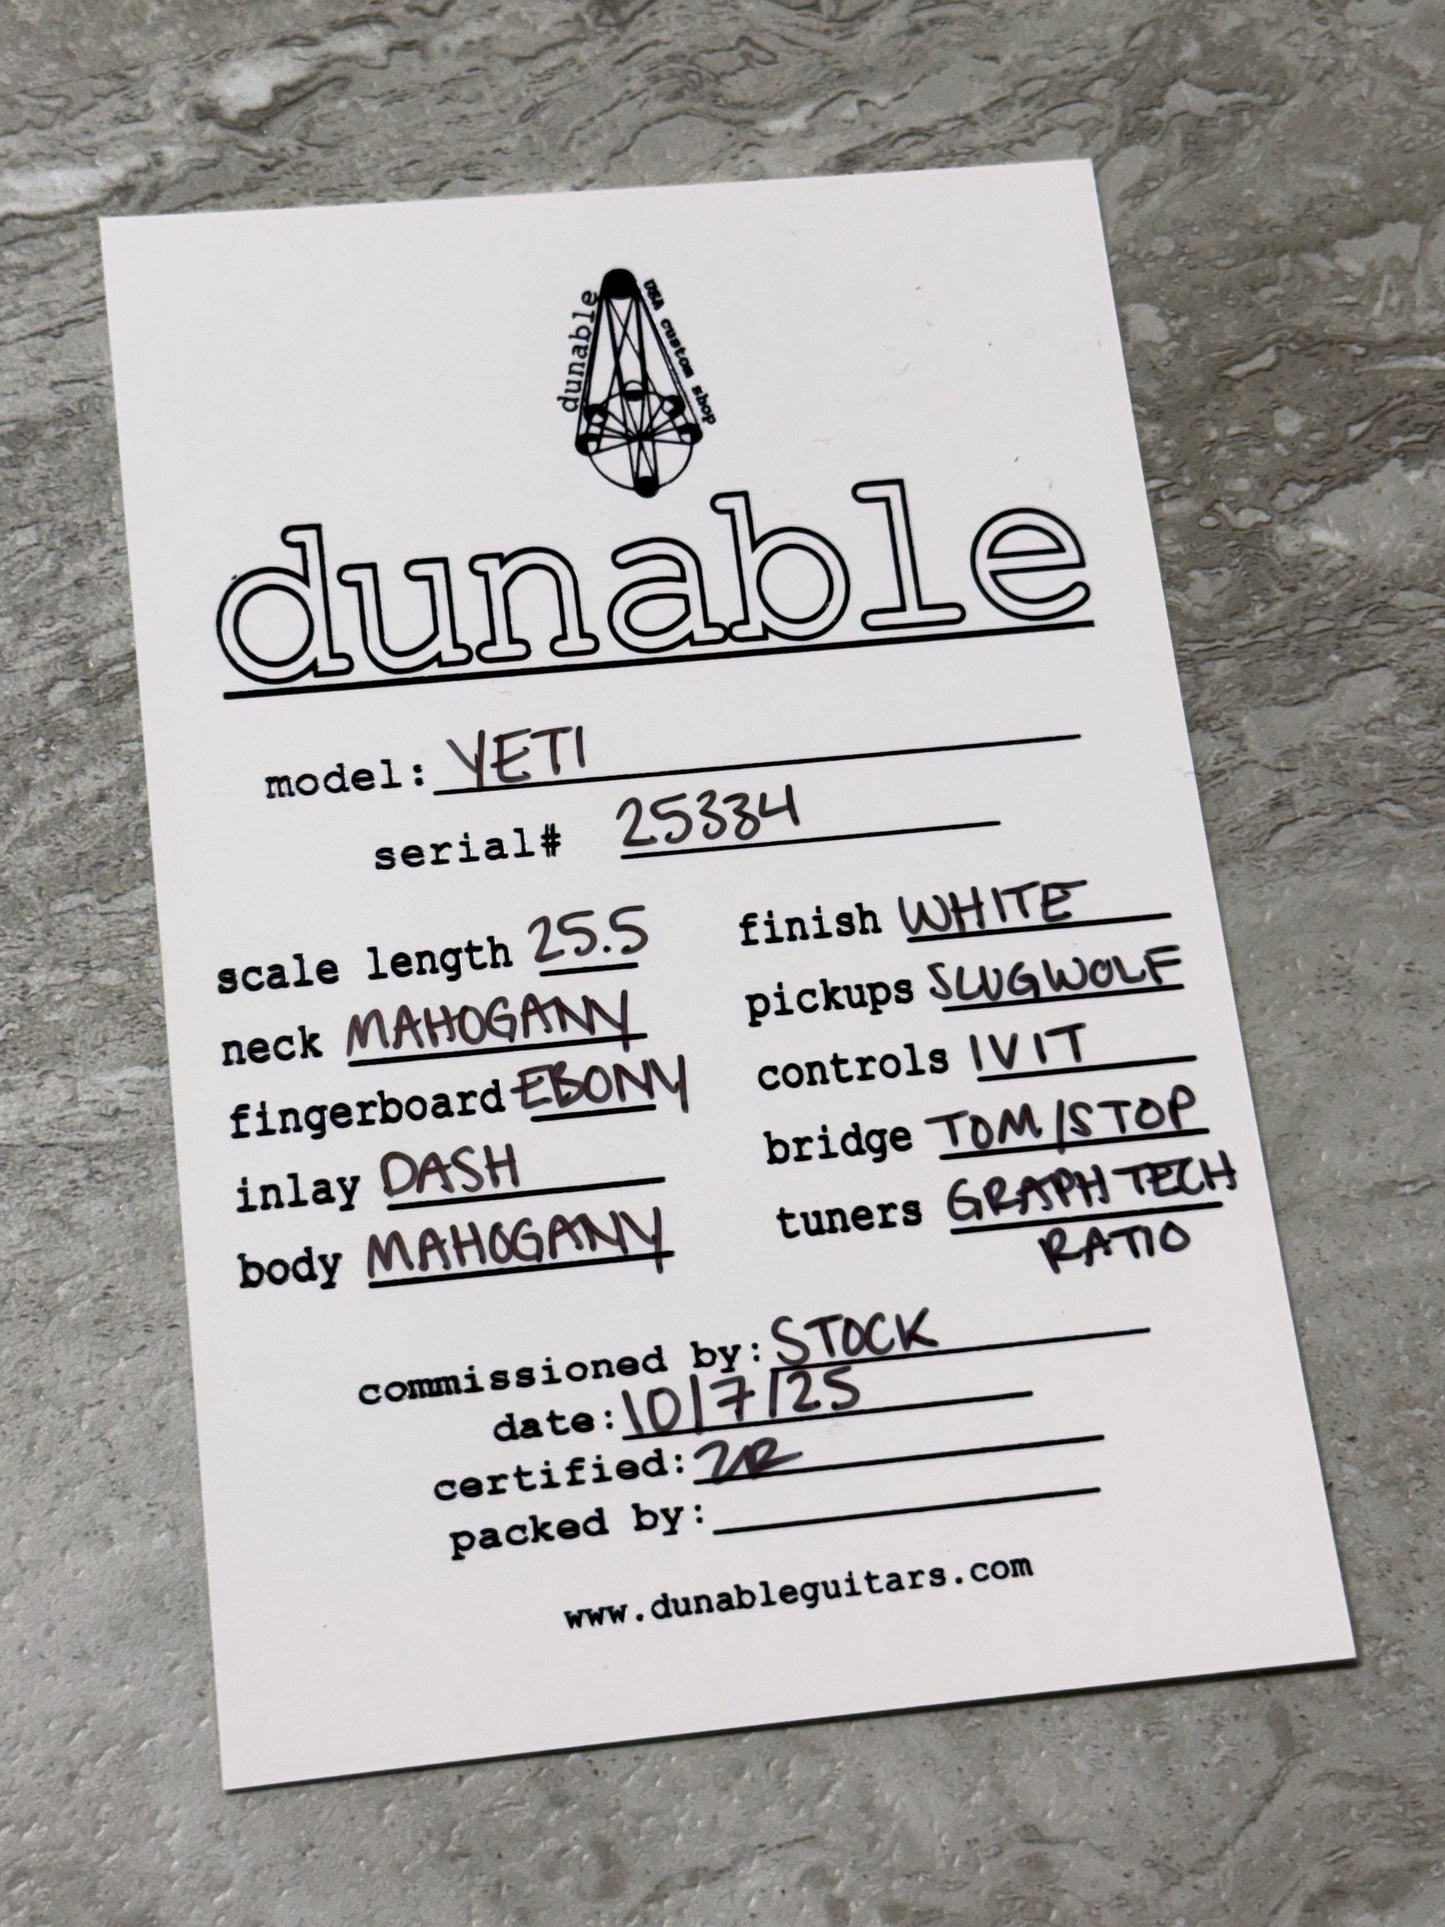 dunable
USA custom shop
dunable
model: YETI
serial# 25334
scale length 25.5
neck MAHOGANY
fingerboard EBONY
inlay DASH
body MAHOGANY
finish WHITE
pickups SLUGWOLF
controls 1V1T
bridge TOM/STOP
tuners GRAPHTECH
RATIO
commissioned by: STOCK
date: 10/7/25
certified:
packed by:
www.dunableguitars.com